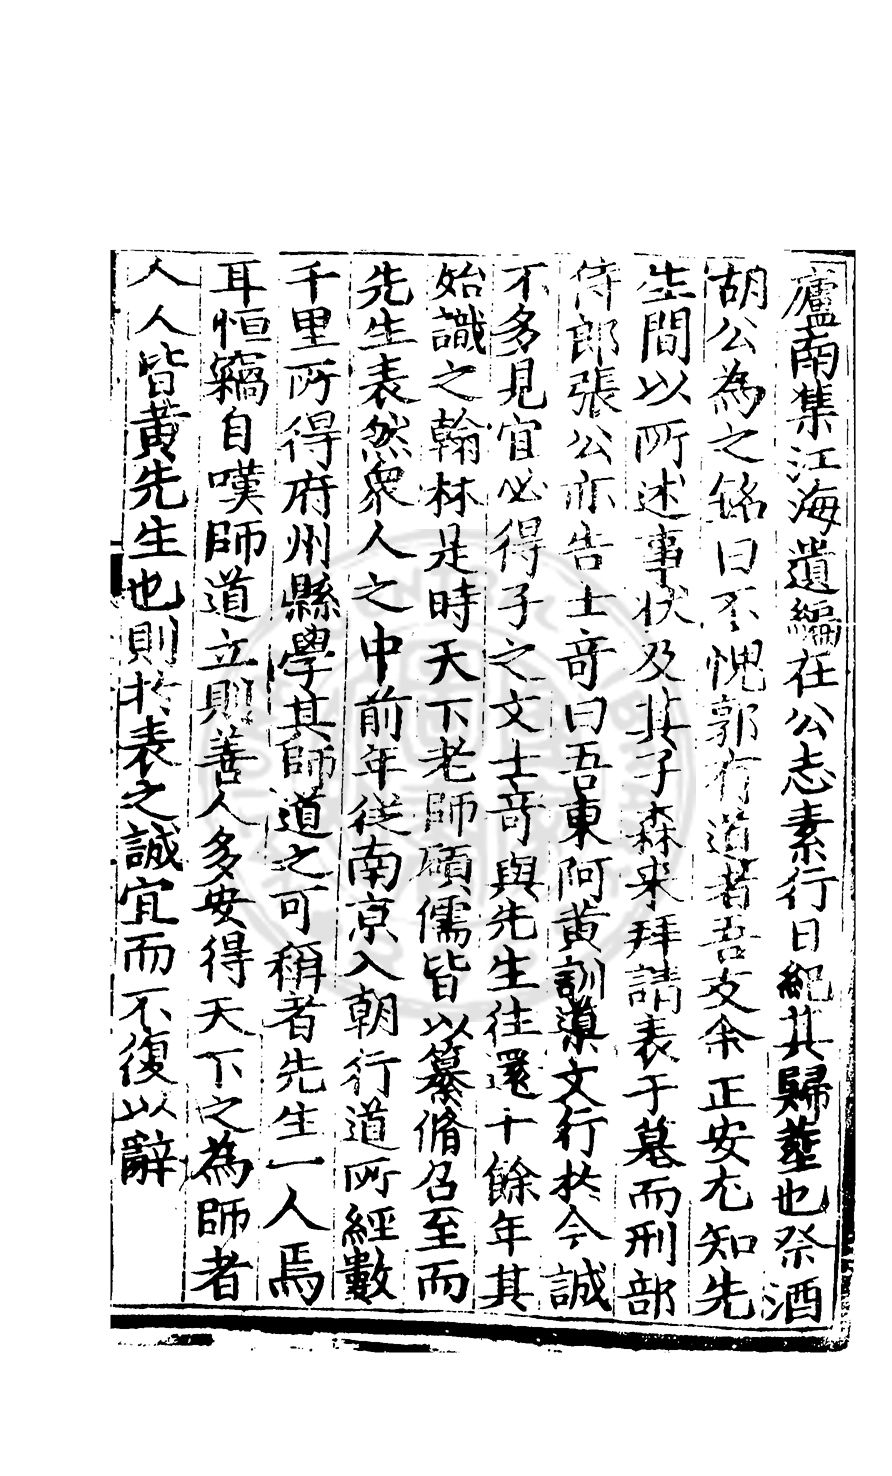 廬南集江海遺編在公志素行日絕其歸塟也祭酒
胡公為之銘曰不愧郭有道者吾友余正安尤知先
生間以所述事狀及其子森来拜請表于墓而刑部
侍郎張公亦告士竒曰吾東阿黄訓導文行扵今誠
不多見宜必得子之文士竒與先生往還十餘年其
始識之翰林是時天下老師碩儒皆以纂脩召至而
先生表然衆人之中前年從南京入朝行道所經數
千里所得府州縣學其師道之可稱者先生一人焉
耳恒竊自嘆師道立則善人多安得天下之為師者
人人皆黄先生也則扵表之誠宜而不復以辭